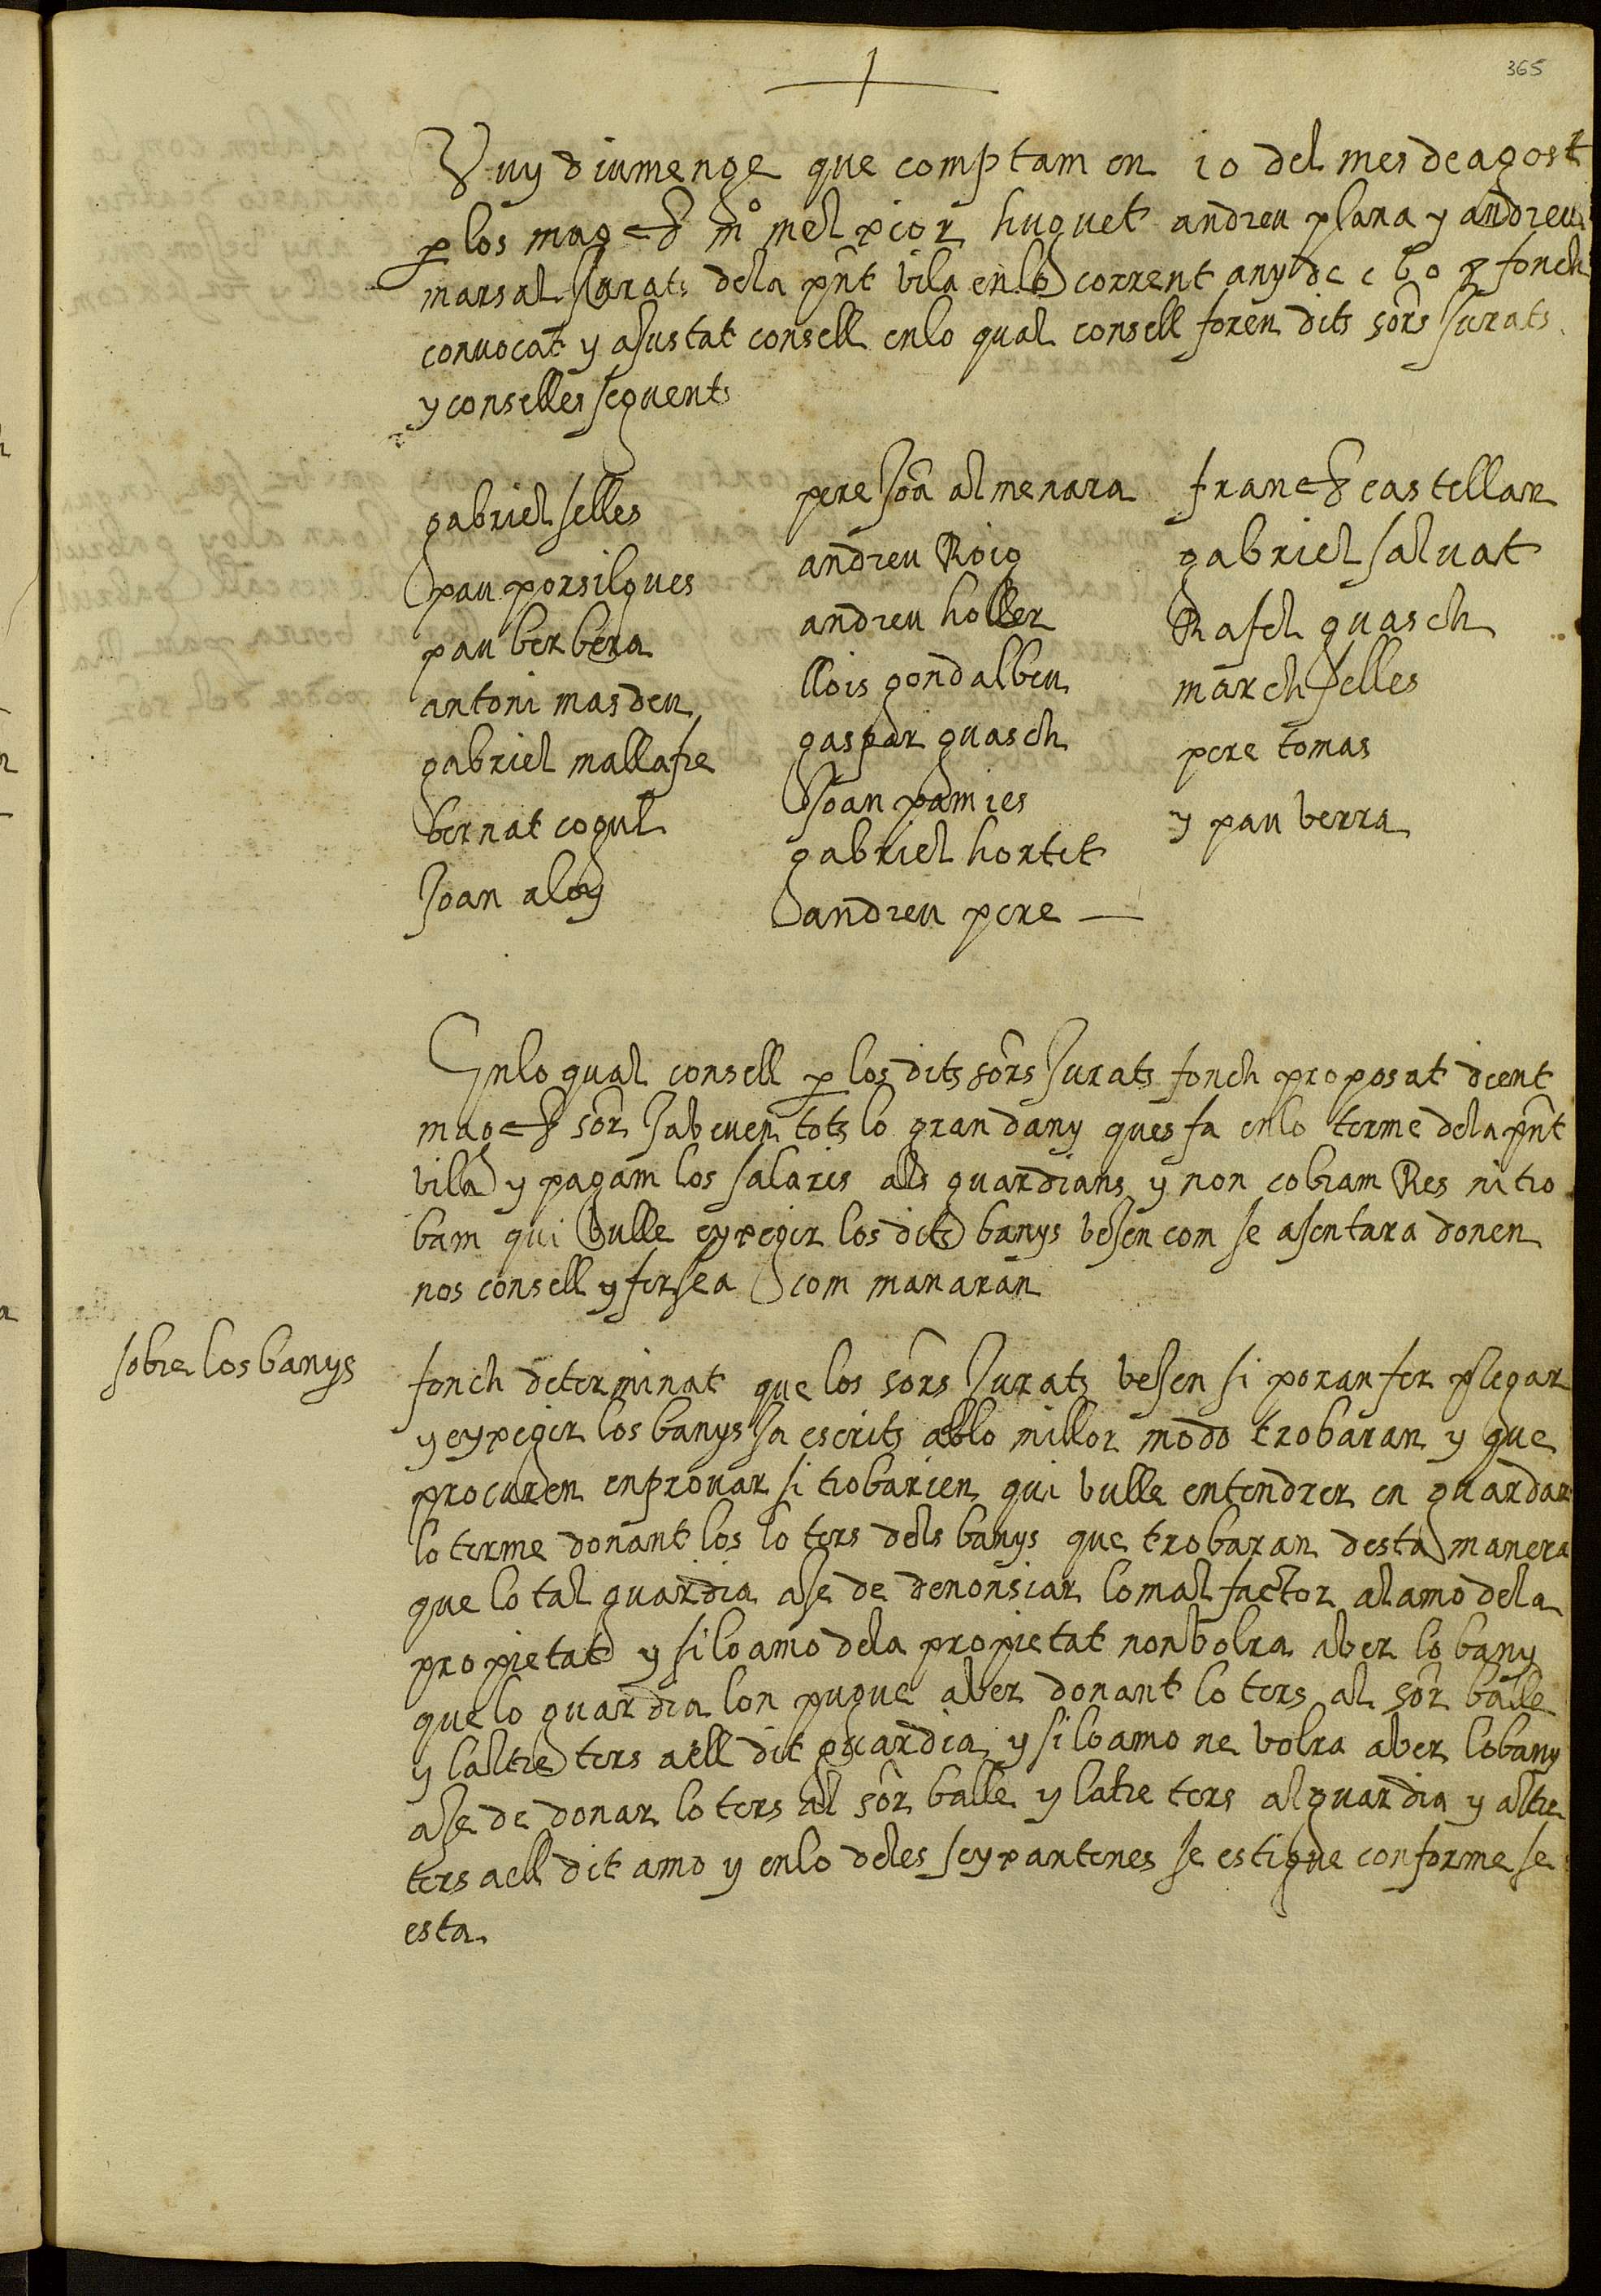 365
Vuy diumenge que comptam en 10 del mes de agost
p los mag.cs m° melxior huguet andreu plana y andreu
marsal Jurats dela pnt vila enlo corrent any de fonch
convocat y ajustat consell enlo qual consell foren dits sors Jurats
y conselles seguents
gabriel selles
pau porsilgues
pau berbera
antoni masdeu
gabriel mallafre
bernat cogul
Joan aloy
pere Joa almenara
andreu Roig
andreu holler
llois gondalbeu
gaspar guasch
Joan pamies
gabriel hortet
andreu pere —
franc.ch castellar
gabriel salvat
Rafel guasch
march selles
pere tomas
y pau verra
Enlo qual consell p los dits sors Jurats fonch proposat dient
mag.cs sor Ja beuen tots lo gran dany ques fa enlo terme dela pnt
vila y pagam los salaris als guardians y non cobram Res ni tro
bam qui vulle exegir los dits banys vejen com se asentara donen
nos consell y ferse a com manaran
sobre los banys
fonch determinat que los sors Jurats vejen si poran fer plegar
y exegir los banys Ja escrits ablo millor modo trobaran y que
procuren enprovar si trobarien qui vulle entendrer en guardar
lo terme donant los lo ters dels banys que trobaran desta manera
que lo tal guardia aje de denonsiar lo mal factor al amo dela
propietat y si lo amo dela propietat non volra aver lo bany
que lo guardia lon pugue aver donant lo ters al sor balle
y laltre ters a ell dit guardia y si lo amo ne volra aver lo bany
aje de donar lo ters al sor balle y latre ters al guardia y altre
ters a ell dit amo y enlo deles sexantenes se estigue conforme se
esta